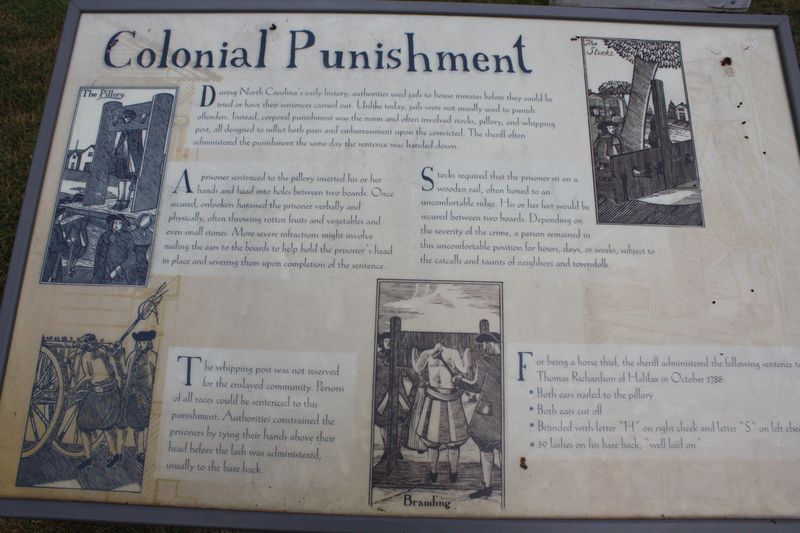 Colonial Punishment
During North Carolina's early history, authorities used jails to house inmates before they could be
tried or have their sentences carried out. Unlike today, jails were not usually used to punish
offenders. Instead, corporal punishment was the norm and often involved stocks, pillory, and whipping
post, all designed to inflict both pain and embarrassment upon the convicted. The sheriff often
administered the punishment the same day the sentence was handed down.
The Stocks.
The Pillory.
A prisoner sentenced to the pillory inserted his or her
hands and head into holes between two boards. Once
secured, onlookers harassed the prisoner verbally and
physically, often throwing rotten fruits and vegetables and
even small stones. More severe infractions might involve
nailing the ears to the boards to help hold the prisoner's head
in place and severing them upon completion of the sentence.
Stocks required that the prisoner sit on a
wooden rail, often honed to an
uncomfortable ridge. His or her feet would be
secured between two boards. Depending on
the severity of the crime, a person remained in
this uncomfortable position for hours, days, or weeks, subject to
the catcalls and taunts of neighbors and townsfolk.
The whipping post was not reserved
for the enslaved community. Persons
of all races could be sentenced to this
punishment. Authorities constrained the
prisoners by tying their hands above their
head before the lash was administered,
usually to the bare back.
Branding
For being a horse thief, the sheriff administered the following sentence
Thomas Richardson of Halifax in October 1788:
* Both ears nailed to the pillory
* Both ears cut off
* Branded with letter "H" on right cheek and letter "S" on left
* 39 lashes on his bare back, "well laid on"